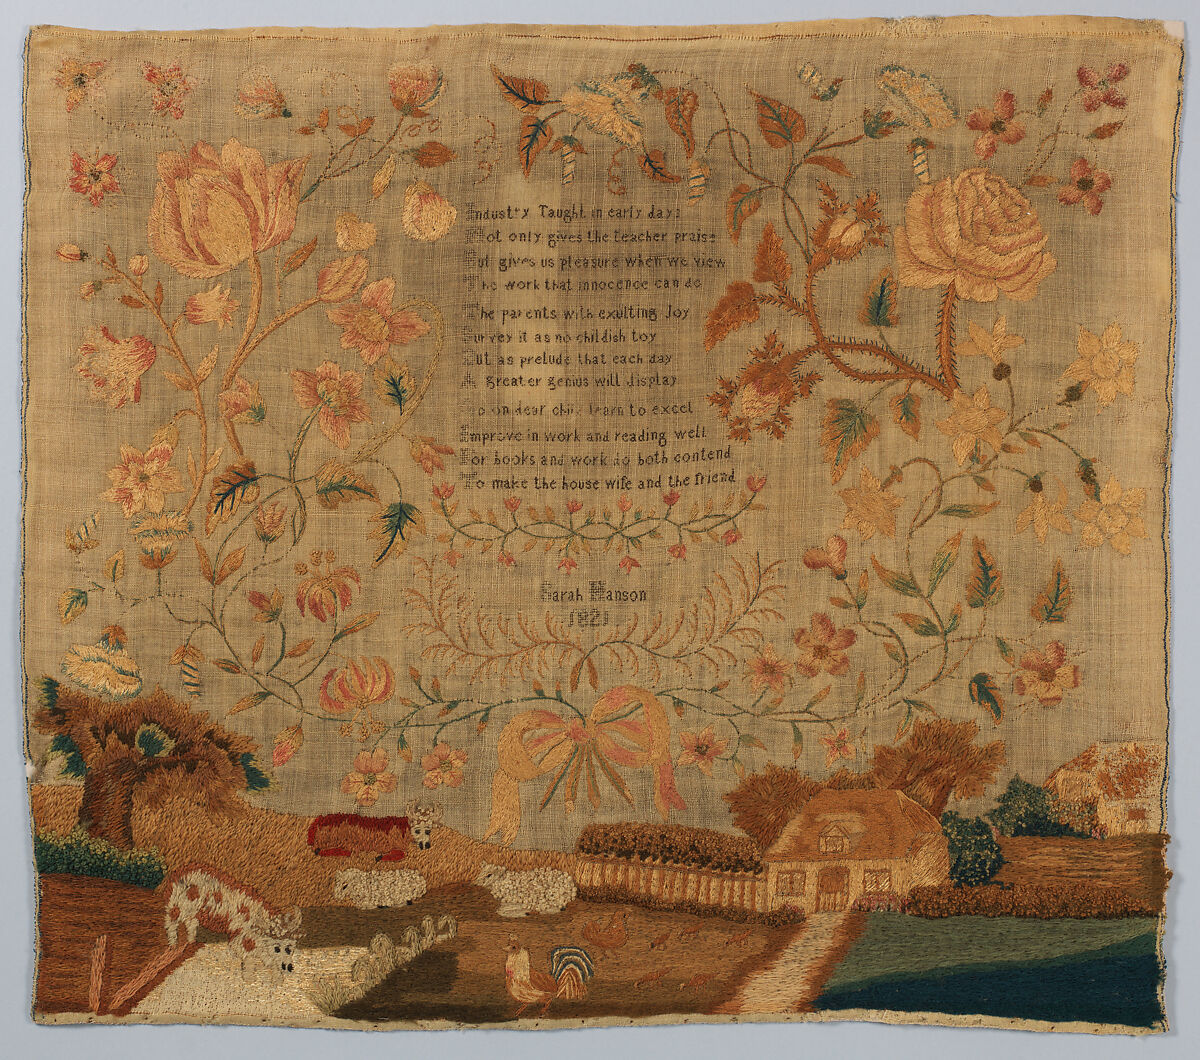 Industry Taught in early days
Not only gives the teacher praise
But gives us pleasure when we view
The work that innocence can do
The parents with exulting Joy
Survey it as no childish toy
But as prelude that each day
A greater genius will display
Go on dear child learn to excel
Improve in work and reading well
For books and work do both contend
To make the house wife and the friend
Sarah Hanson
1821